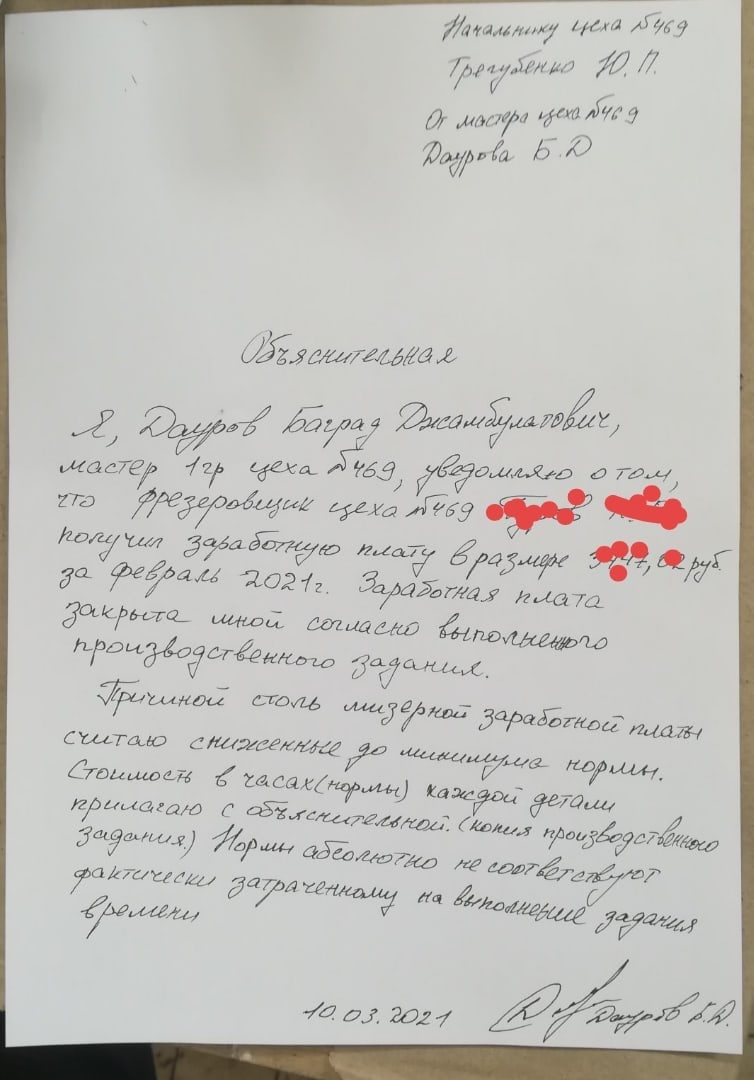 Начальнику цеха №469
Трегубенко Ю.П.
От мастера цеха №469
Даурова Б.Д
Объяснительная
Я, Дауров Баград Джамбулатович,
мастер 1гр цеха №469, уведомляю о том,
что фрезеровщик цеха №469
получил заработную плату в размере руб.
за февраль 2021г. Заработная плата
закрыта мной согласно выполненного
производственного задания.
Причиной столь мизерной заработной платы
считаю сниженные до минимума нормы.
Стоимость в часах(нормы) каждой детали
прилагаю с объяснительной.(копия производственного
задания.) Нормы абсолютно не соответствуют
фактически затраченному на выполнение задания
времени
10.03.2021 Дауров Б.Д.